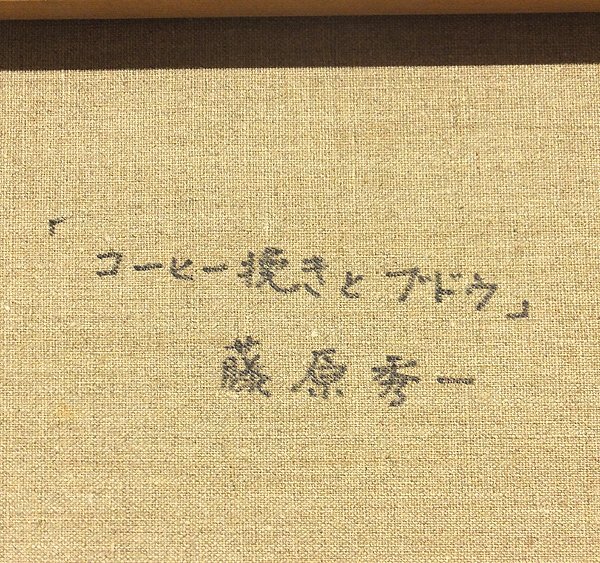 「コーヒー挽きとブドウ」
藤原秀一